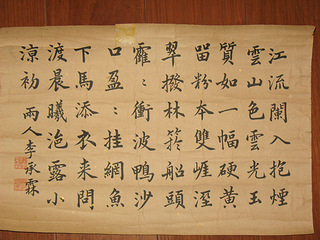 江流闌入抱煙
雲山色雲光玉
質如一幅硬黃
畱粉本雙崕溼
翠撥林箊船頭
靃〻衝波鴨沙
口盈〻挂網魚
下馬添衣来問
渡晨曦浥露小
涼初 雨人李承霖